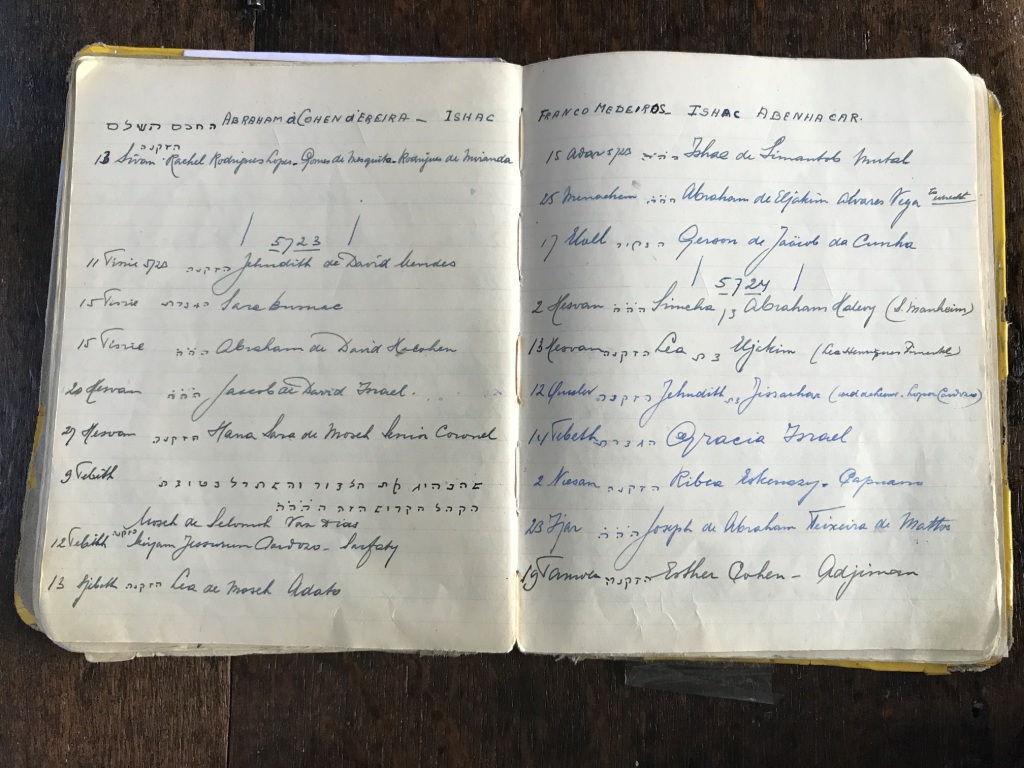 החכם השלם ABRAHAM à COHEN d'EREIRA – ISHAC
הזקנה
13 Sivan Rachel Rodrigues Lopes - Gomes de Mesquita - Rodrigues de Miranda
5723
11 Tisrie 5723 הזקנה Jehudith de David Mendes
15 Tisrie הגברת Sara
15 Tisrie ה״ה״ה Abraham de David Hacohen
20 Hesvan ה״ה״ה Jaacob de David Israel.
27 Hesvan הזקנה Hana Sara de Mosch Senior Coronel
9 Tebith
הקהל הקדוש הזה ה״ה״ה״ה
Mosch de Selomoh Van Dias
12 Tebith הזקנה Mirjam Jessurun Cardozo - Sarfaty
13 הזקנה Lea de Mosch Adato
FRANCO MEDEIROS ISHAC ABENHACAR.
15 Adar 5723 ה״ה״ה Ishac de Simantob Mutal
25 Menachem ה״ה״ה Abraham de Eljakim Alvares Vega
17 Elull הבקיר Gerson de Jäacob da Cunha
5724
2 Hesvan ה״ה״ה Simcha בן Abraham Halevy (S. Manheim)
13 Hesvan הזקנה Lea בת Eljakim (Lea Henriques Pimentel)
12 הזקנה Jehudith בת Jissachar
14 Tebeth הגברת Gracia Israel
2 Niesan הזקנה Ribca Eskenazy - Capuano
23 Ijar ה״ה״ה Joseph de Abraham Teixeira de Mattos
19 הזקנה Esther Cohen - Adjiman